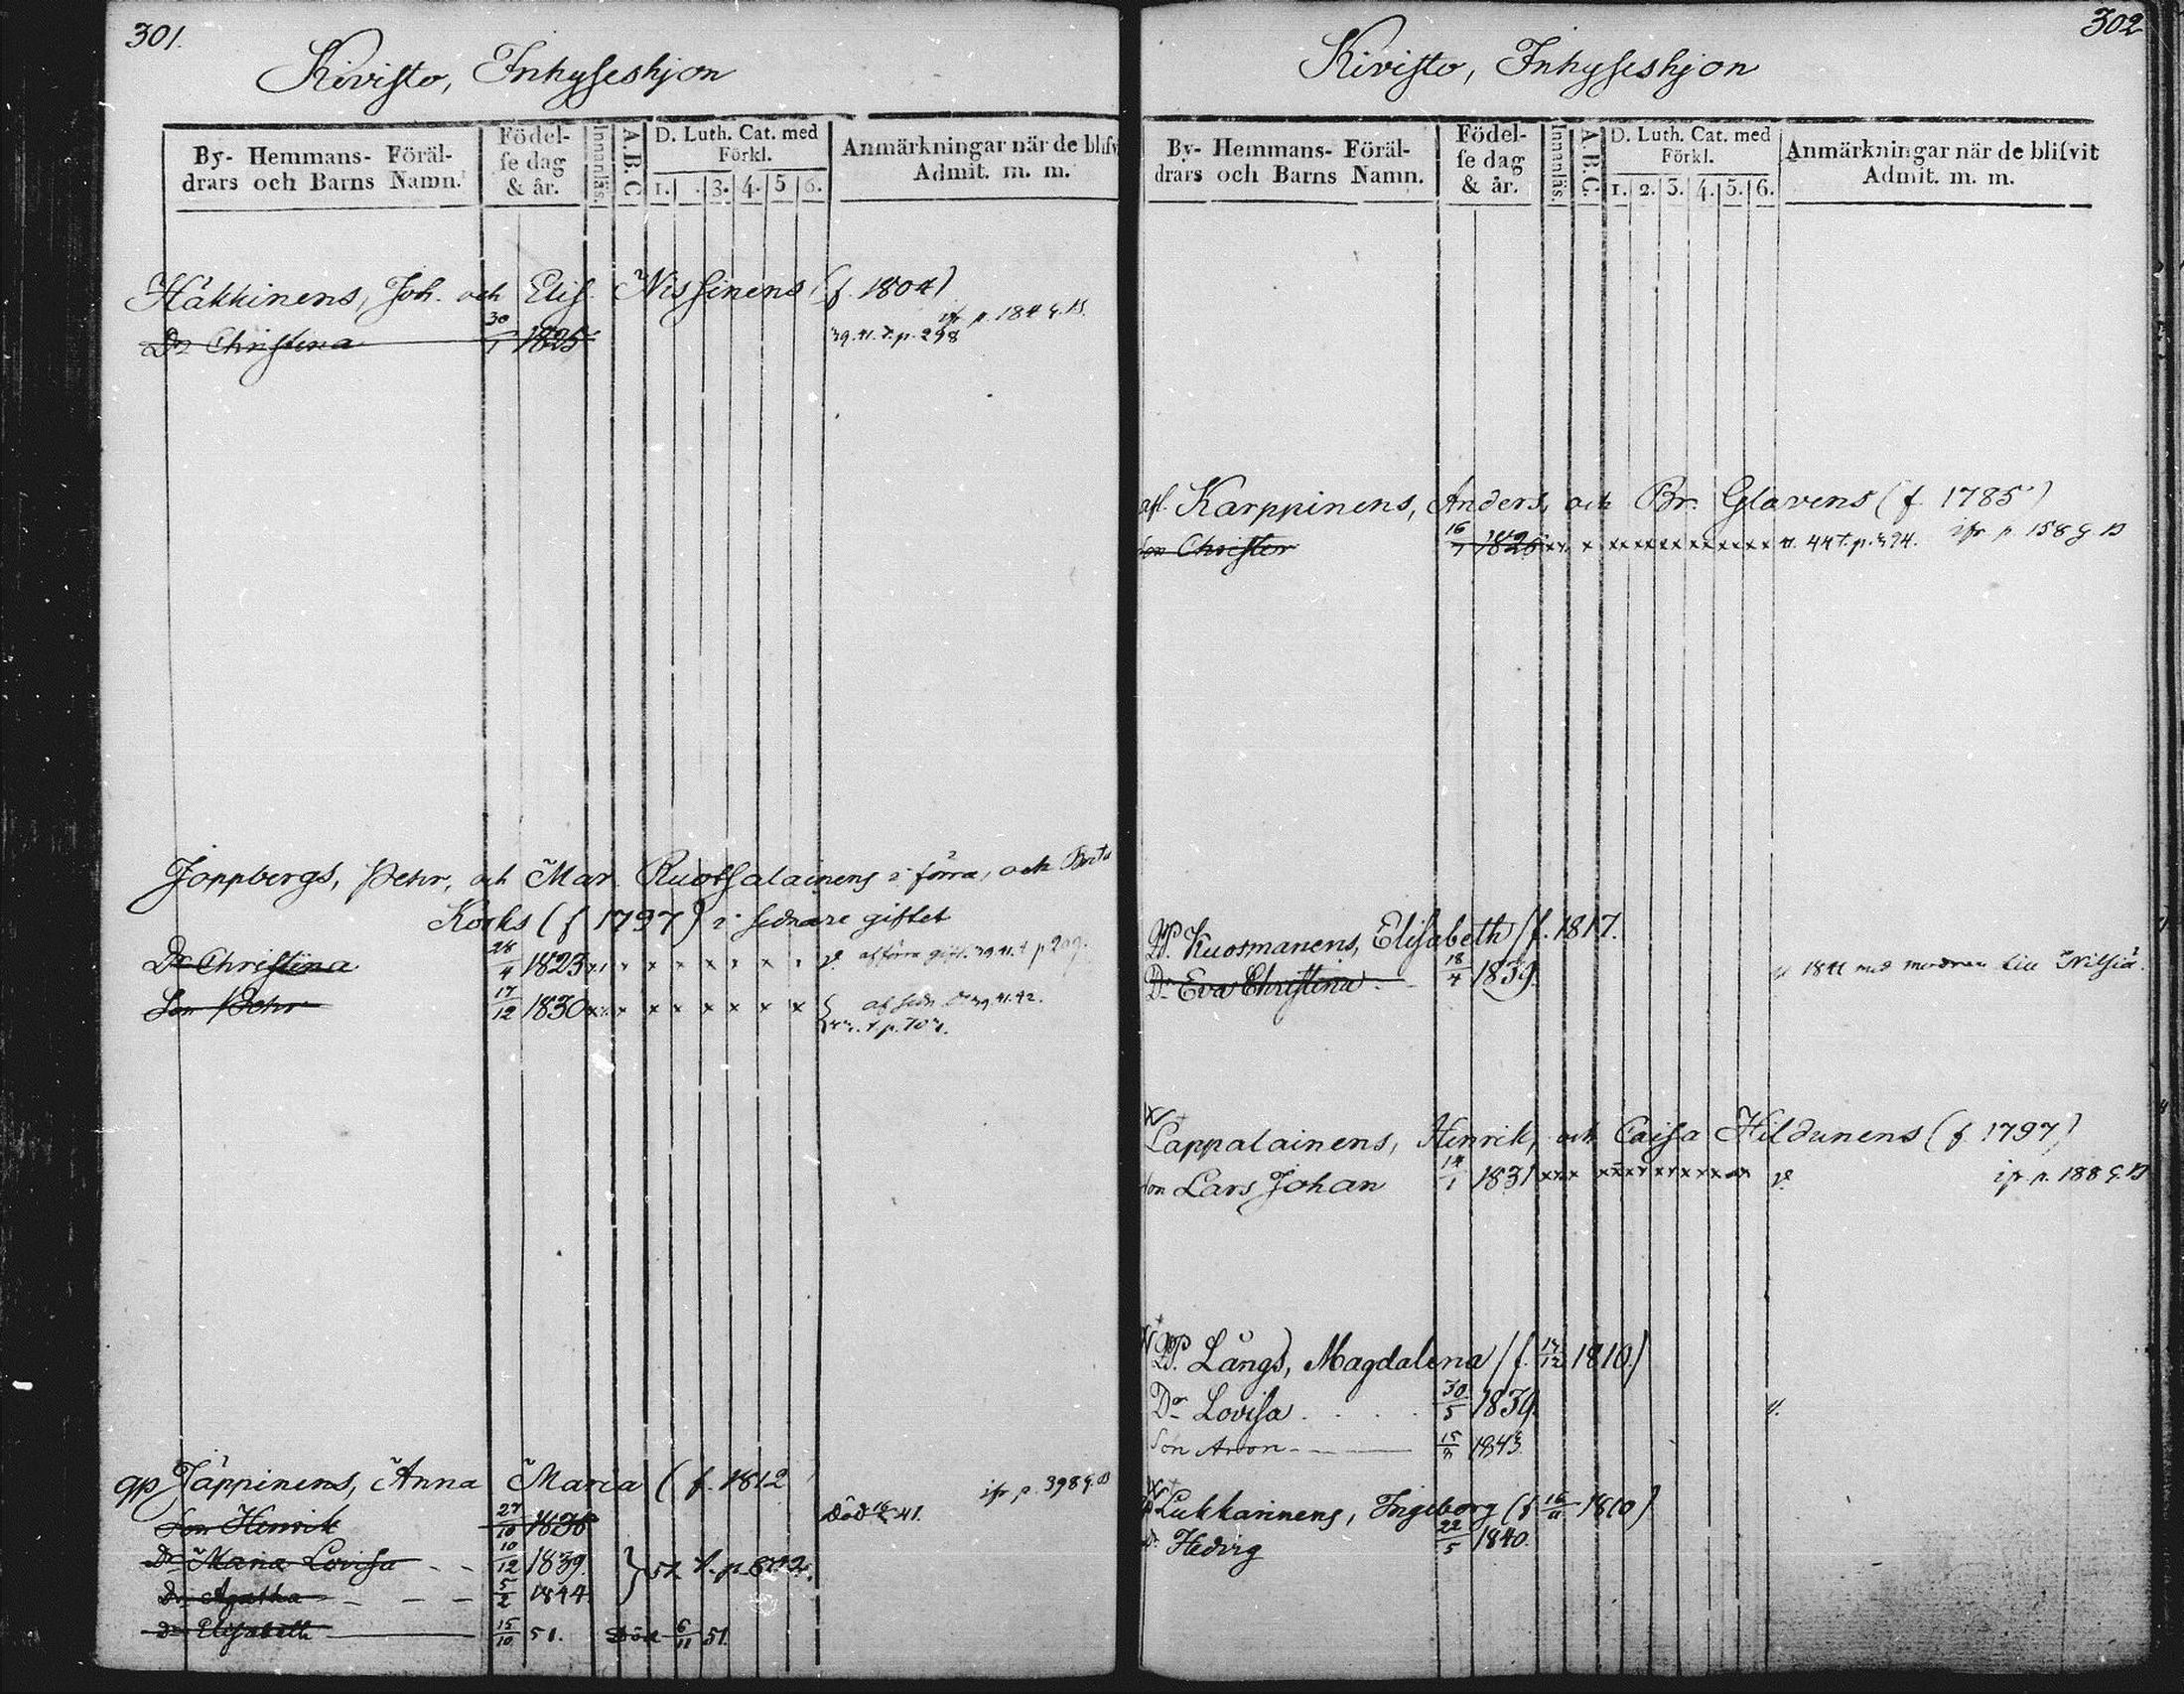 301.
Kivisto, Inhyseshjon
By- Hemmans- Föräl-
drars och Barns Namn.
Födel-
se dag
& år.
Innanläs.
A.B.C
D. Luth. Cat. med
Förkl.
1. . 3. 4. 5 6.
Anmärkningar när de blifv
Admit. m. m.
Häkkinens, Joh. och Elis. Nissinens (f. 1804)
ifr p. 184 G.B.
Dr Christina 30/1 1825 39.41. t. p. 298
Joppbergs, Pehr, och Mar. Ruotsalainens i förra, och Brita
Korks (f 1797) i sednare giftet
Dr Christina 28/4 1823 x x x x x x v. af förra gift. 39.41. t p 209.
Son Pehr 17/12 1830 x x x x x x x af sedn. Do 39.41.42.
t p. 707.
qp Jäppinens, Anna Maria (f. 1812
ifr p. 398 G.B
Son Henrik 27/10 1836 död 41.
Dr Maria Lovisa 10/12 1839. } 51 t. p. 872.
Dr Agatha 5/2 1844.
Dr Elisabeth 15/10 51. Död 6/11 51.
302
Kivisto, Inhyseshjon
By- Hemmans- Föräl-
drars och Barns Namn.
Födel-
se dag
& år.
Innanläs.
A.B.C.
D. Luth. Cat. med
Förkl.
1. 2. 3. 4. 5. 6.
Anmärkningar när de blifvit
Admit. m. m.
afl. Karppinens, Anders, och Br. Glavens (f 1785)
Son Christer 16/7 1826 xx x xxxxxxxxxxxx 44 t. p. 394. ifr p. 158 G.B
QP. Kuosmanens, Elisabeth (f. 1817.
Dr Eva Christina 18/4 1839. 1841 med modren till Nilsiä.
Lappalainens, Henrik, och Caisa Hildunens (f 1797)
Son Lars Johan 14/1 1831 xxx xxxxxxxxxxx v. ifr p. 188 G.B
QP. Långs, Magdalena (f. 17/12 1810.)
Dr Lovisa 30/5 1839. v.
Son Aron 1843
Lukkarinens, Ingeborg (f 16/11 1810)
Dr Hedvig 22/5 1840.